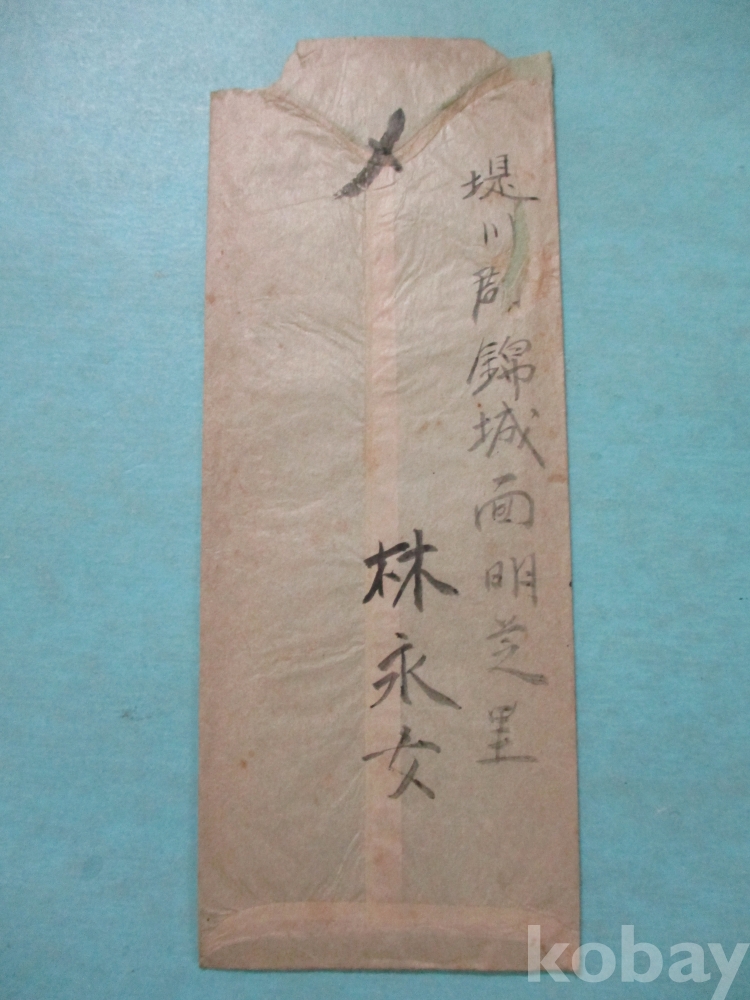 堤川郡錦城面明芝里
林永女
kobay